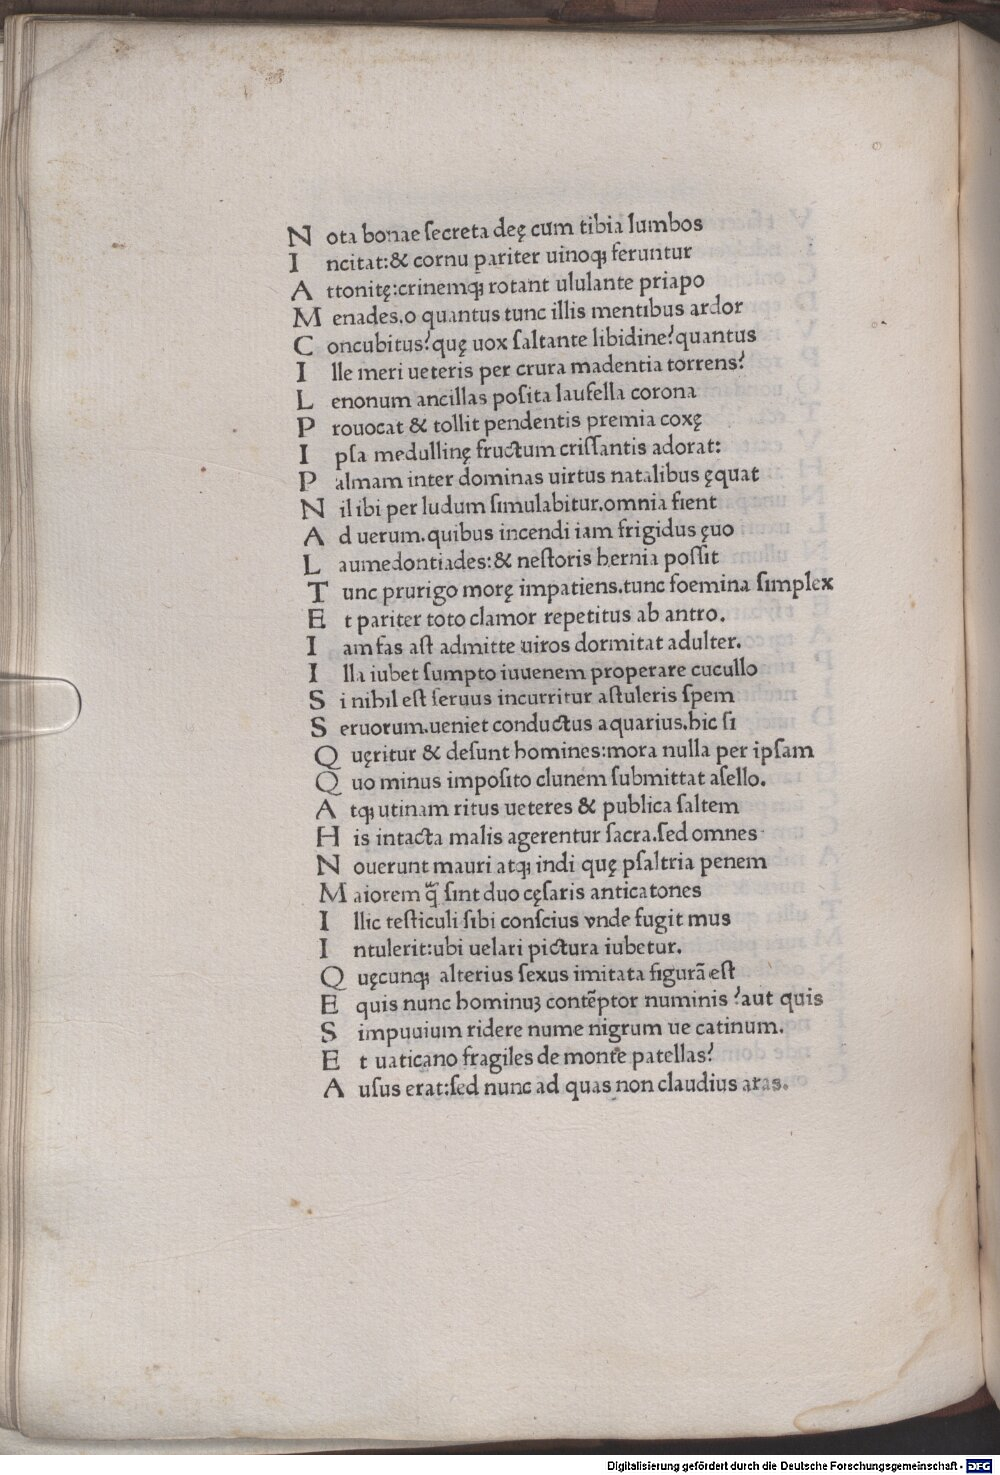 Nota bonae ſecreta deę cum tibia lumbos
Incitat:& cornu pariter uinoqꝫ feruntur
Attonitę:crinemqꝫ rotant ululante priapo
Menades.o quantus tunc illis mentibus ardor
Concubitus?quę uox ſaltante libidine?quantus
Ille meri ueteris per crura madentia torrens?
Lenonum ancillas poſita laufella corona
Prouocat & tollit pendentis premia coxę
Ipſa medullinę fructum criſſantis adorat:
Palmam inter dominas uirtus natalibus ęquat
Nil ibi per ludum ſimulabitur.omnia fient
Ad uerum.quibus incendi iam frigidus ęuo
Laumedontiades:& neſtoris hernia poſſit
Tunc prurigo morę impatiens.tunc foemina ſimplex
Et pariter toto clamor repetitus ab antro.
Iam fas aſt admitte uiros dormitat adulter.
Illa iubet ſumpto iuuenem properare cucullo
Si nihil eſt ſeruus incurritur aſtuleris ſpem
Seruorum.ueniet conductus aquarius.hic ſi
Quęritur & deſunt homines:mora nulla per ipſam
Quo minus impoſito clunem ſubmittat aſello.
Atqꝫ utinam ritus ueteres & publica ſaltem
His intacta malis agerentur ſacra.ſed omnes
Nouerunt mauri atqꝫ indi quę pſaltria penem
Maiorem q̃ ſint duo cęſaris anticatones
Illic teſticuli ſibi conſcius vnde fugit mus
Intulerit:ubi uelari pictura iubetur.
Quęcunqꝫ alterius ſexus imitata figurã eſt
Et quis nunc hominuꝫ contẽptor numinis ?aut quis
Simpuuium ridere nume nigrum ue catinum.
Et uaticano fragiles de monte patellas?
Auſus erat:ſed nunc ad quas non claudius aras.
Digitalisierung gefördert durch die Deutsche Forschungsgemeinschaft - DFG